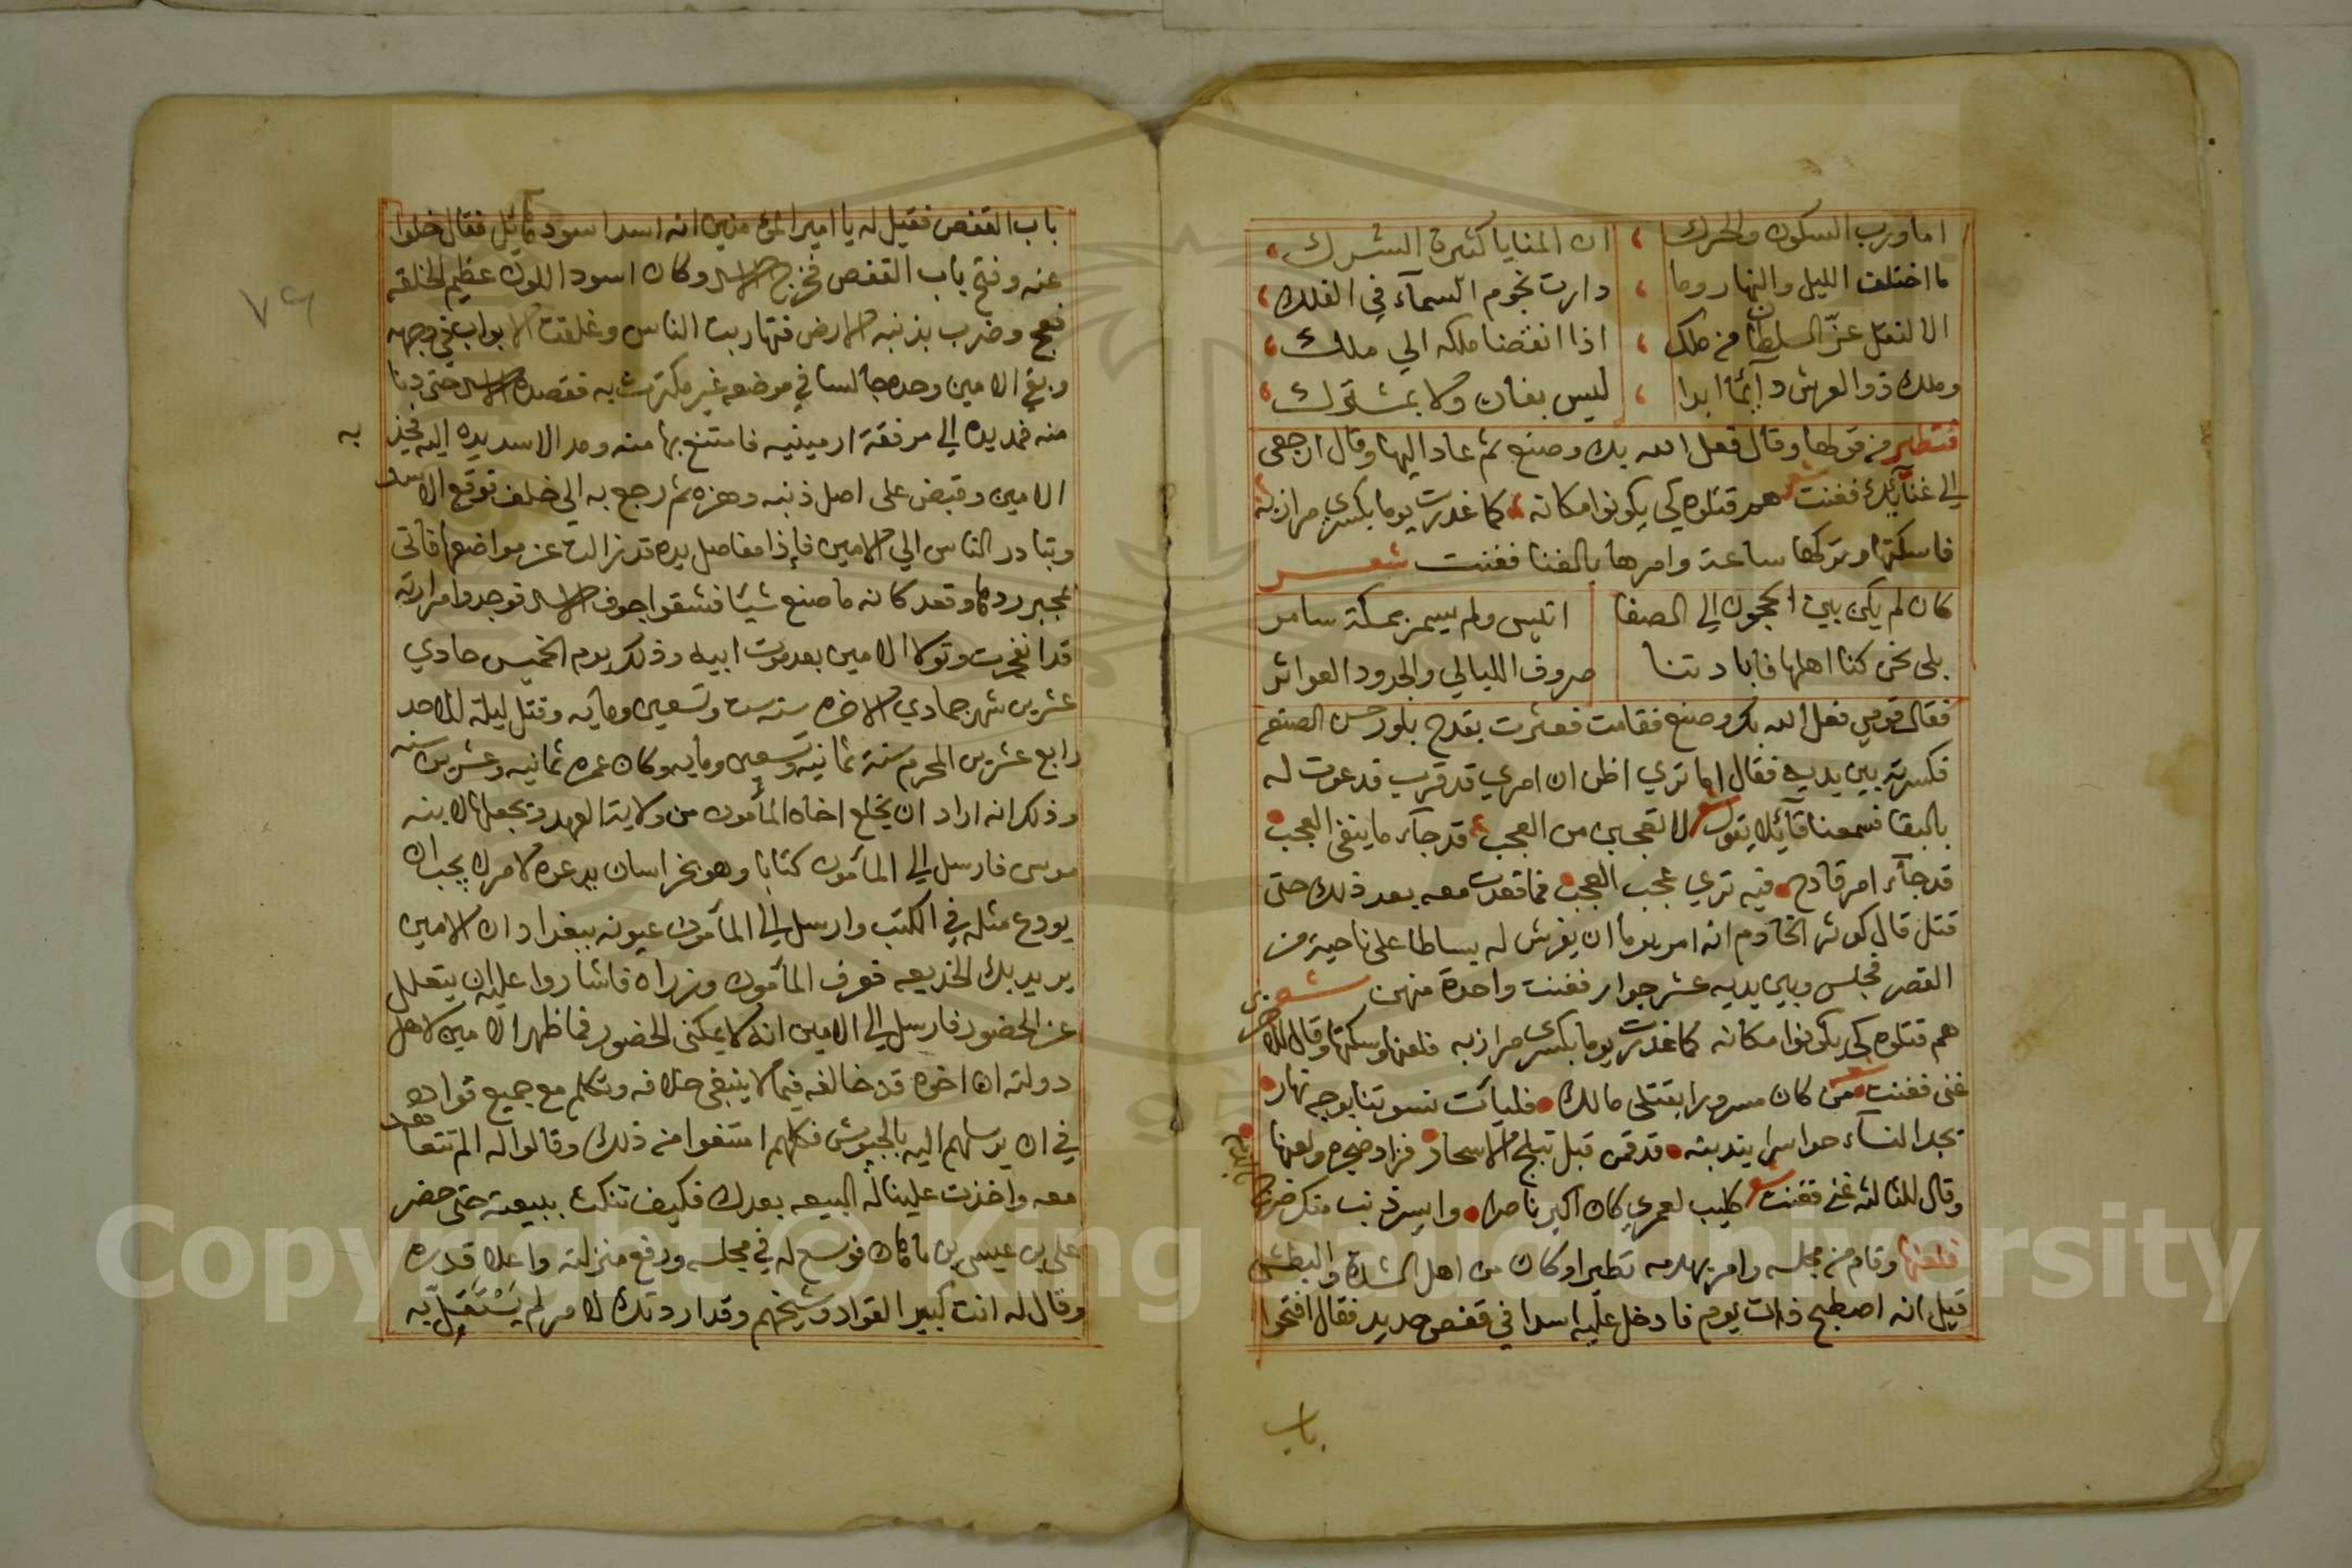 اما ورب السكون والحرك ، ان المنايا كثيرة الشرك
ما اختلف الليل والنهار وما ، دارت نجوم السمآء في الفلك
الا لنقل عزّ السلطان من ملك ، اذا انقضا ملكه الي ملك
وملك ذو العرش دآئما ابدا ، ليس بفان ولا بمشترك
فتطير من قولها وقال فعل الله بك وصنع ثم عاد اليها وقال ارجعى
الي غنآئك فغنت شعر همد قتلوه كي يكونوا مكانه ، كما غدرت يوما بكسرى مرازبه
فاسكتها وتركها ساعة وامرها بالغنا فغنت شعر
كان لم يكن بين الحجون الي الصفا انيس ولم يسمر بمكة سامر
بلى نحن كنا اهلها فابادتنا صروف الليالي والجدود العواثر
فقال قومي فعل الله بك وصنع فقامت فعثرت بقدح بلور حسن الصنع
فكسرته بين يديه فقال اما تري اظن ان امري قد قرب فدعوت له
بالبقا فسمعنا قآئلا يقول شعر لا تعجبن من العجب ، قد جآء ما ينفى العجب
قد جآء امر قادح فيه تري عجب العجب فما قعدت معه بعد ذلك حتى
قتل قال كوثر الخادم انه امر يوما ان يفرش له بساطا على ناحية من
القصر فجلس وبين يديه عشر جوار فغنت واحدة منهن شعر
هم قتلوه كي يكونوا مكانه كما غدرت يوما بكسرى مرازبه فلعنها وسكتها وقال للاخرى
غنى فغنت شعر من كان مسرورا بقتلى مالك فليات نسوتنا بوجه نهار
تجد النسآء حواسرا يندبنه قد قمن قبل تبلج الاسحار فزاد ضجره ولعنها
وقال للثالثه غنى فغنت شعر كليب لعمري كان اكبر ناصرا وايسر ذنب منك ضرج بالدم
فلعنها وقام من مجلسه وامر بهدمه تطيرا وكان من اهل الشدة والبطش
قيل انه اصطبح ذات يوم فادخل عليه اسدا في قفص حديد فقال افتحوا
باب
باب القفص فقيل له يا امير المؤمنين انه اسد اسود قاتل فقال خلوا
عنه وفتح باب القفص فخرج الاسد وكان اسود اللون عظيم الخلقه
فعج وضرب بذنبه الارض فتهاربت الناس وغلقت الابواب في وجهه
وبقى الامين وحده جالسا في موضعه غير مكترث به فقصده الاسد حتى دنا
منه فمد يده الي مرفقة ارمينيه فامتنع بها منه ومد الاسد يده اليه فجذبه
الامين وقبض على اصل ذنبه وهزه ثم رجع به الي خلف فوقع الاسد
وتبادر الناس الي الامين فإذا مفاصل يده قد زالت عن مواضعها فاتى
بمجبر ردها وقعد كانه ما صنع شيئا فشقوا جوف الاسد فوجدوا مرارته
قد انفجرت وتولا الامين بعد موت ابيه وذلك يوم الخميس حادي
عشرين شهر جمادي الاخره سنه ست وتسعين ومايه وقتل ليلة الاحد
رابع عشرين المحرم سنة ثمانيه وتسعين ومايه وكان عمره ثمانيه وعشرين سنه
وذلك انه اراد ان يخلع اخاه المأمون من ولاية العهد ويجعلها لابنه
موسى فارسل الي المأمون كتابا وهو بخراسان يدعوه لامر لا يجب ان
يودع مثله في الكتب وارسل الي المآمون عيونه ببغداد ان الامين
يريد بك الخديعه فعرف المآمون وزراه فاشاروا عليه ان يتعلل
عن الحضور فارسل الي الامين انه لا يمكنى الحضور فما ظهر الامين لاهل
دولته ان اخوه قد خالفه فيما لا ينبغى خلافه وتكلم مع جميع قواده
في ان يرسلهم اليه بالجيوش فكلهم امتنعوا من ذلك وقالوا له الم تتعاهد
معه واخذت علينا له البيعه بعدك فكيف تنكث ببيعته حتى حضر
على بن عيسى بن ماهان فوسع له في مجلسه ورفع منزلته واعلا قدره
وقال له انت كبير القواد وشيخهم وقد اردتك لامر لم يَسْتَقِلّ به
٧٩